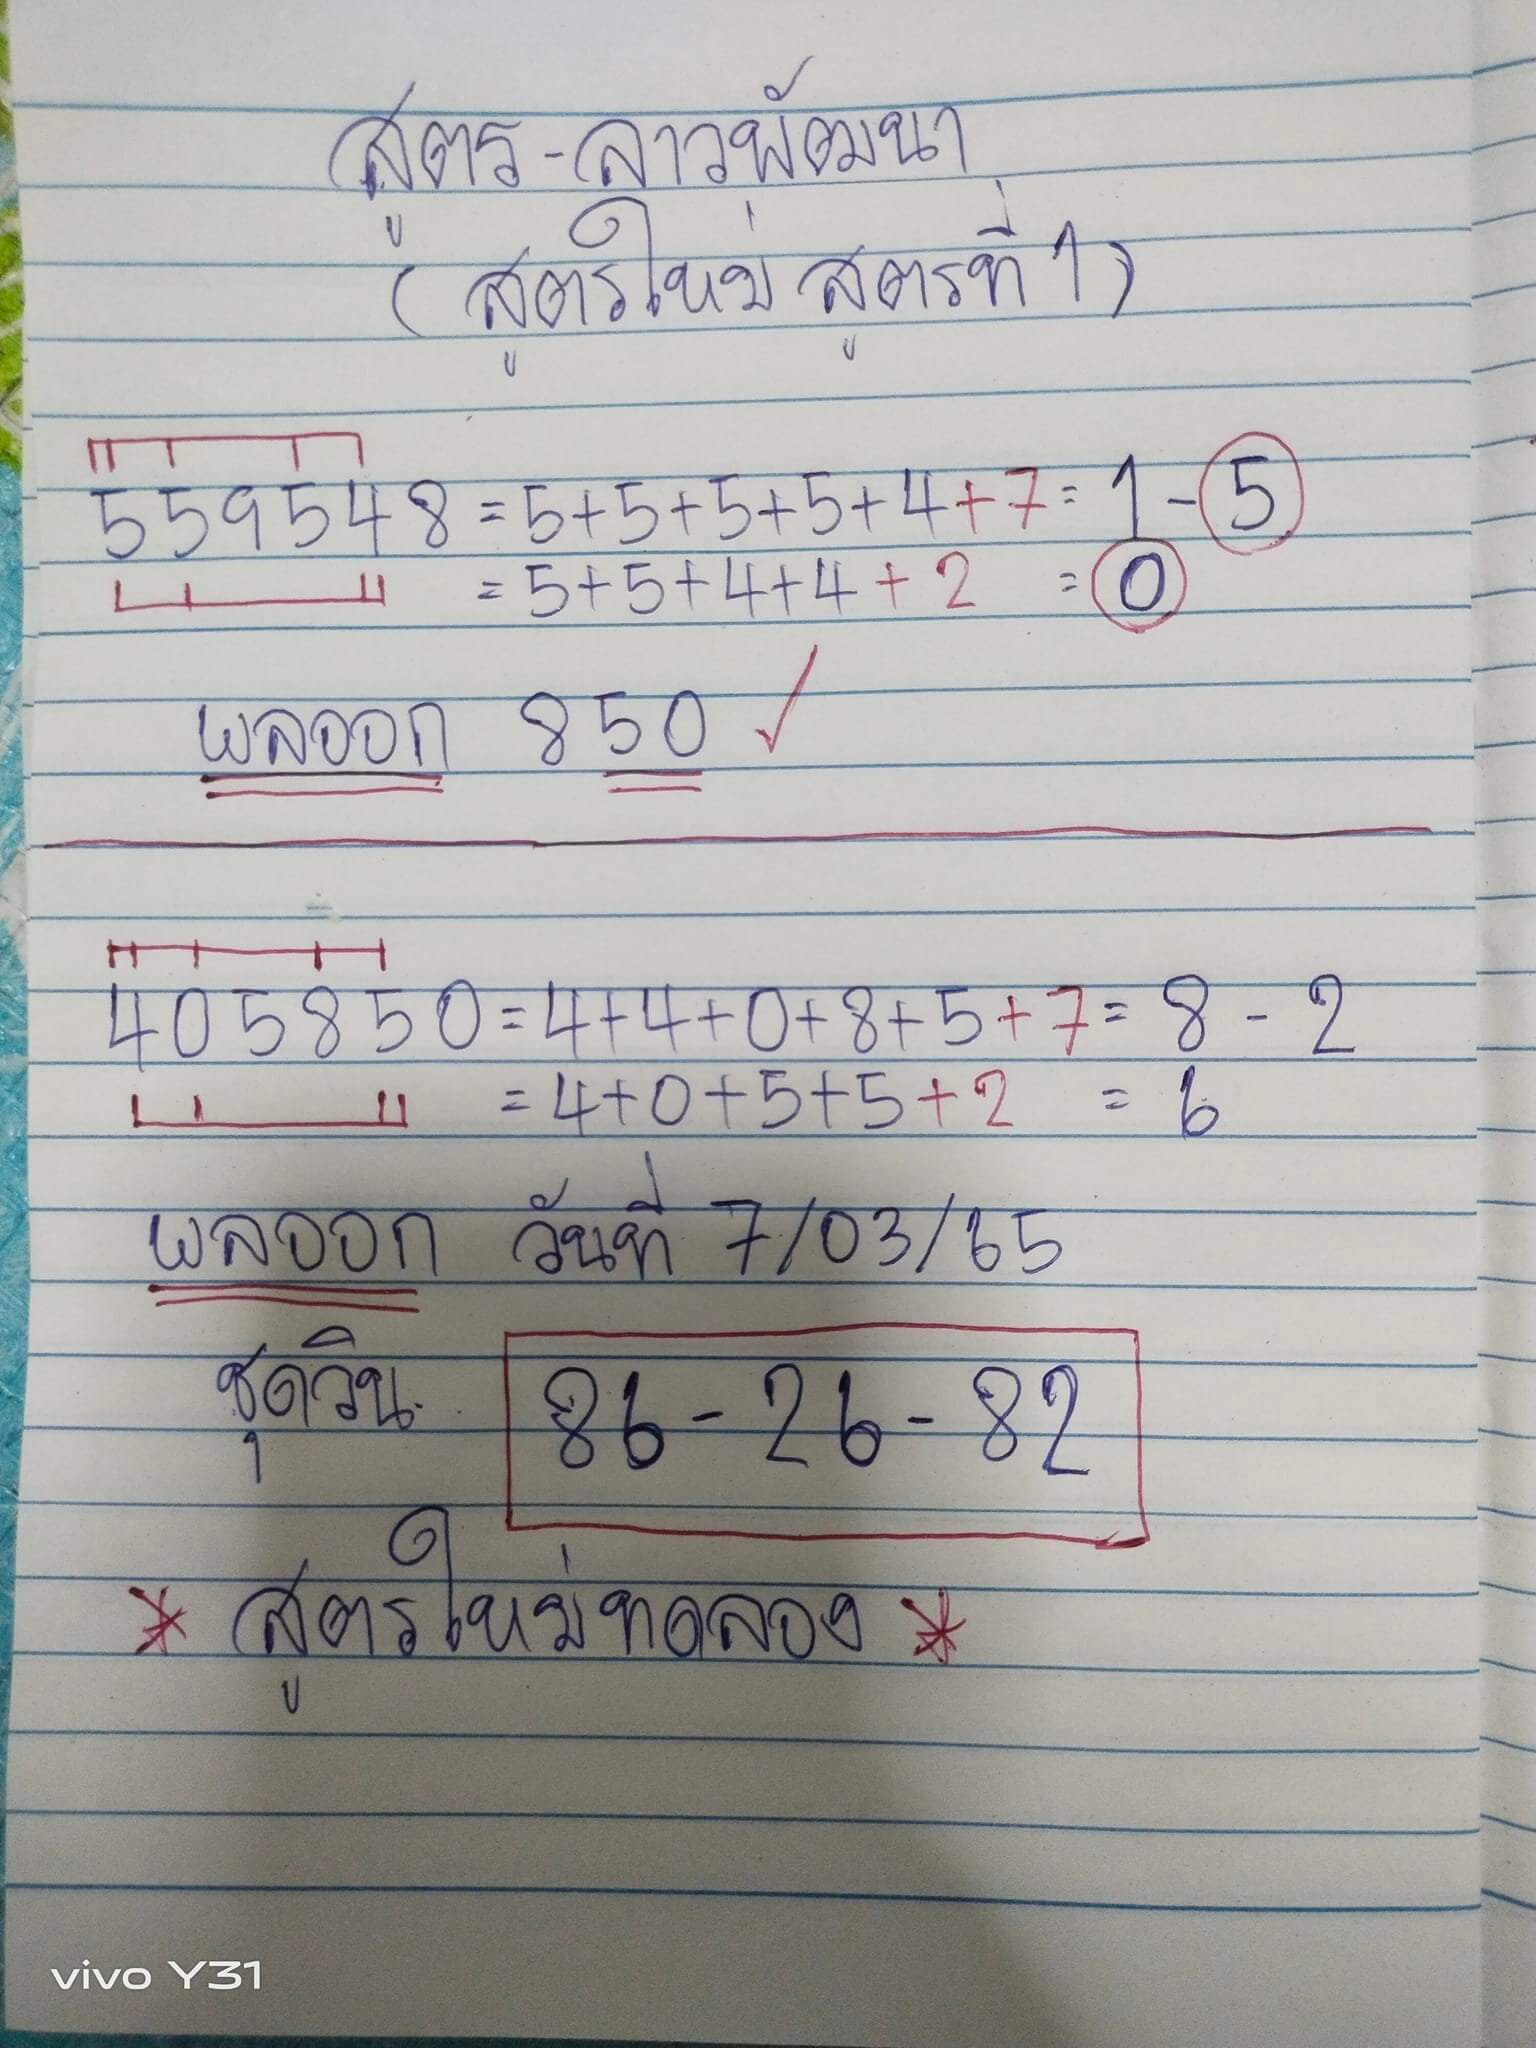 สูตร-ลาวพัฒนา
(สูตรใหม่ สูตรที่ 1)
559548 = 5+5+5+5+4+7 = 1 - 5
= 5+5+4+4+2 = 0
ผลออก 850 ✓
405850 = 4+4+0+8+5+7 = 8 - 2
= 4+0+5+5+2 = 6
ผลออก วันที่ 7/03/65
ชุดวิน 86-26-82
* สูตรใหม่ทดลอง *
vivo Y31